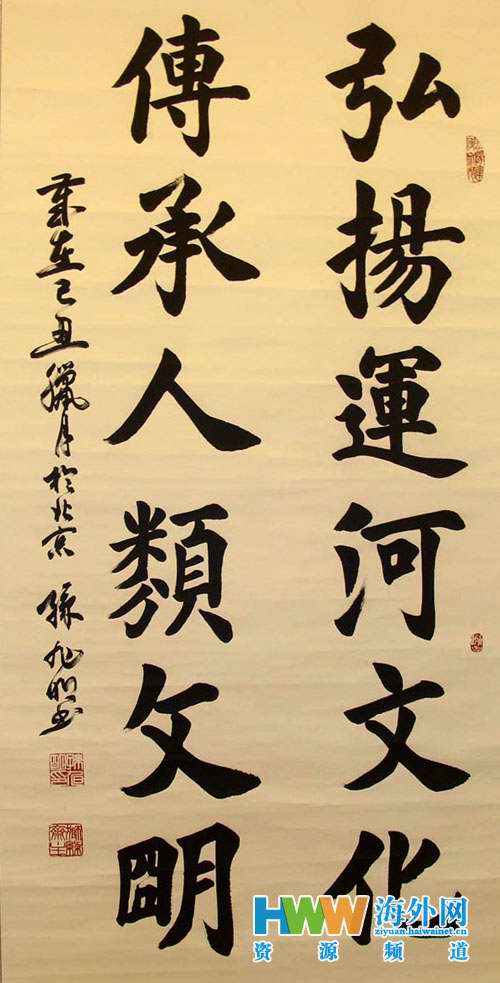 弘揚運河文化
傳承人類文明
歲在己丑臘月於北京 孫旭明書
HWW 海外网
ziyuan.haiwainet.cn
资源频道